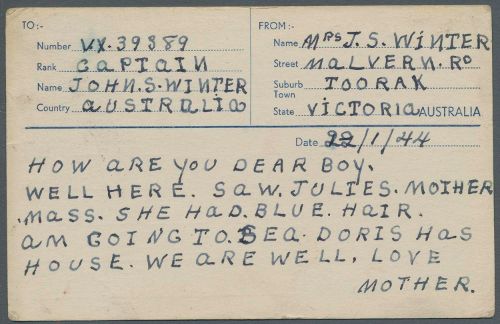 TO:-
Number VX.39389
Rank CAPTAIN
Name JOHN.S.WINTER
Country AUSTRALIA
FROM:-
Name MRS J.S.WINTER
Street MALVERN.RD
Suburb TOORAK
Town
State VICTORIA AUSTRALIA
Date 22/1/44
HOW ARE YOU DEAR BOY.
WELL HERE. SAW. JULIES. MOTHER
.MASS. SHE HAD. BLUE. HAIR.
AM GOING TO. SEA. DORIS HAS
HOUSE. WE ARE WELL. LOVE
MOTHER.